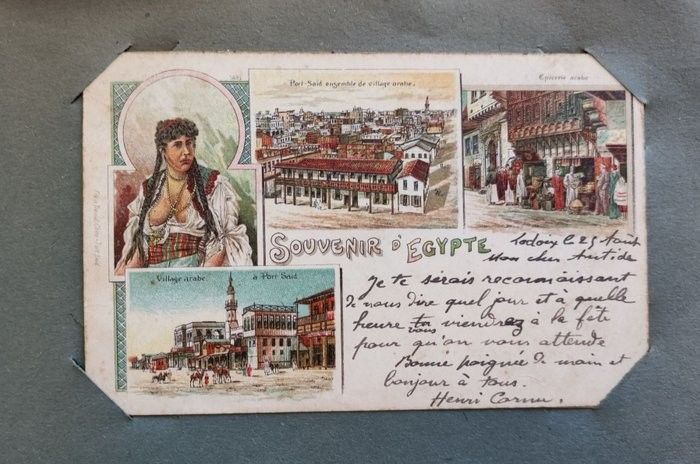 Port-Said ensemble de village arabe.
Epicerie arabe
SOUVENIR D'EGYPTE
Village arabe à Port Said
le 25 Août
Mon cher
Je te serais reconnaissant
de nous dire quel jour et a quelle
heure vous viendrez à la fête
pour qu'on vous attende
Bonne poignée de main et
bonjour à tous.
Henri Cornu.